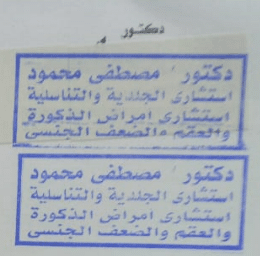 دكتور
دكتور / مصطفى محمود
استشارى الجلدية والتناسلية
استشارى امراض الذكورة
والعقم والضعف الجنسى
دكتور / مصطفى محمود
استشارى الجلدية والتناسلية
استشارى امراض الذكورة
والعقم والضعف الجنسى